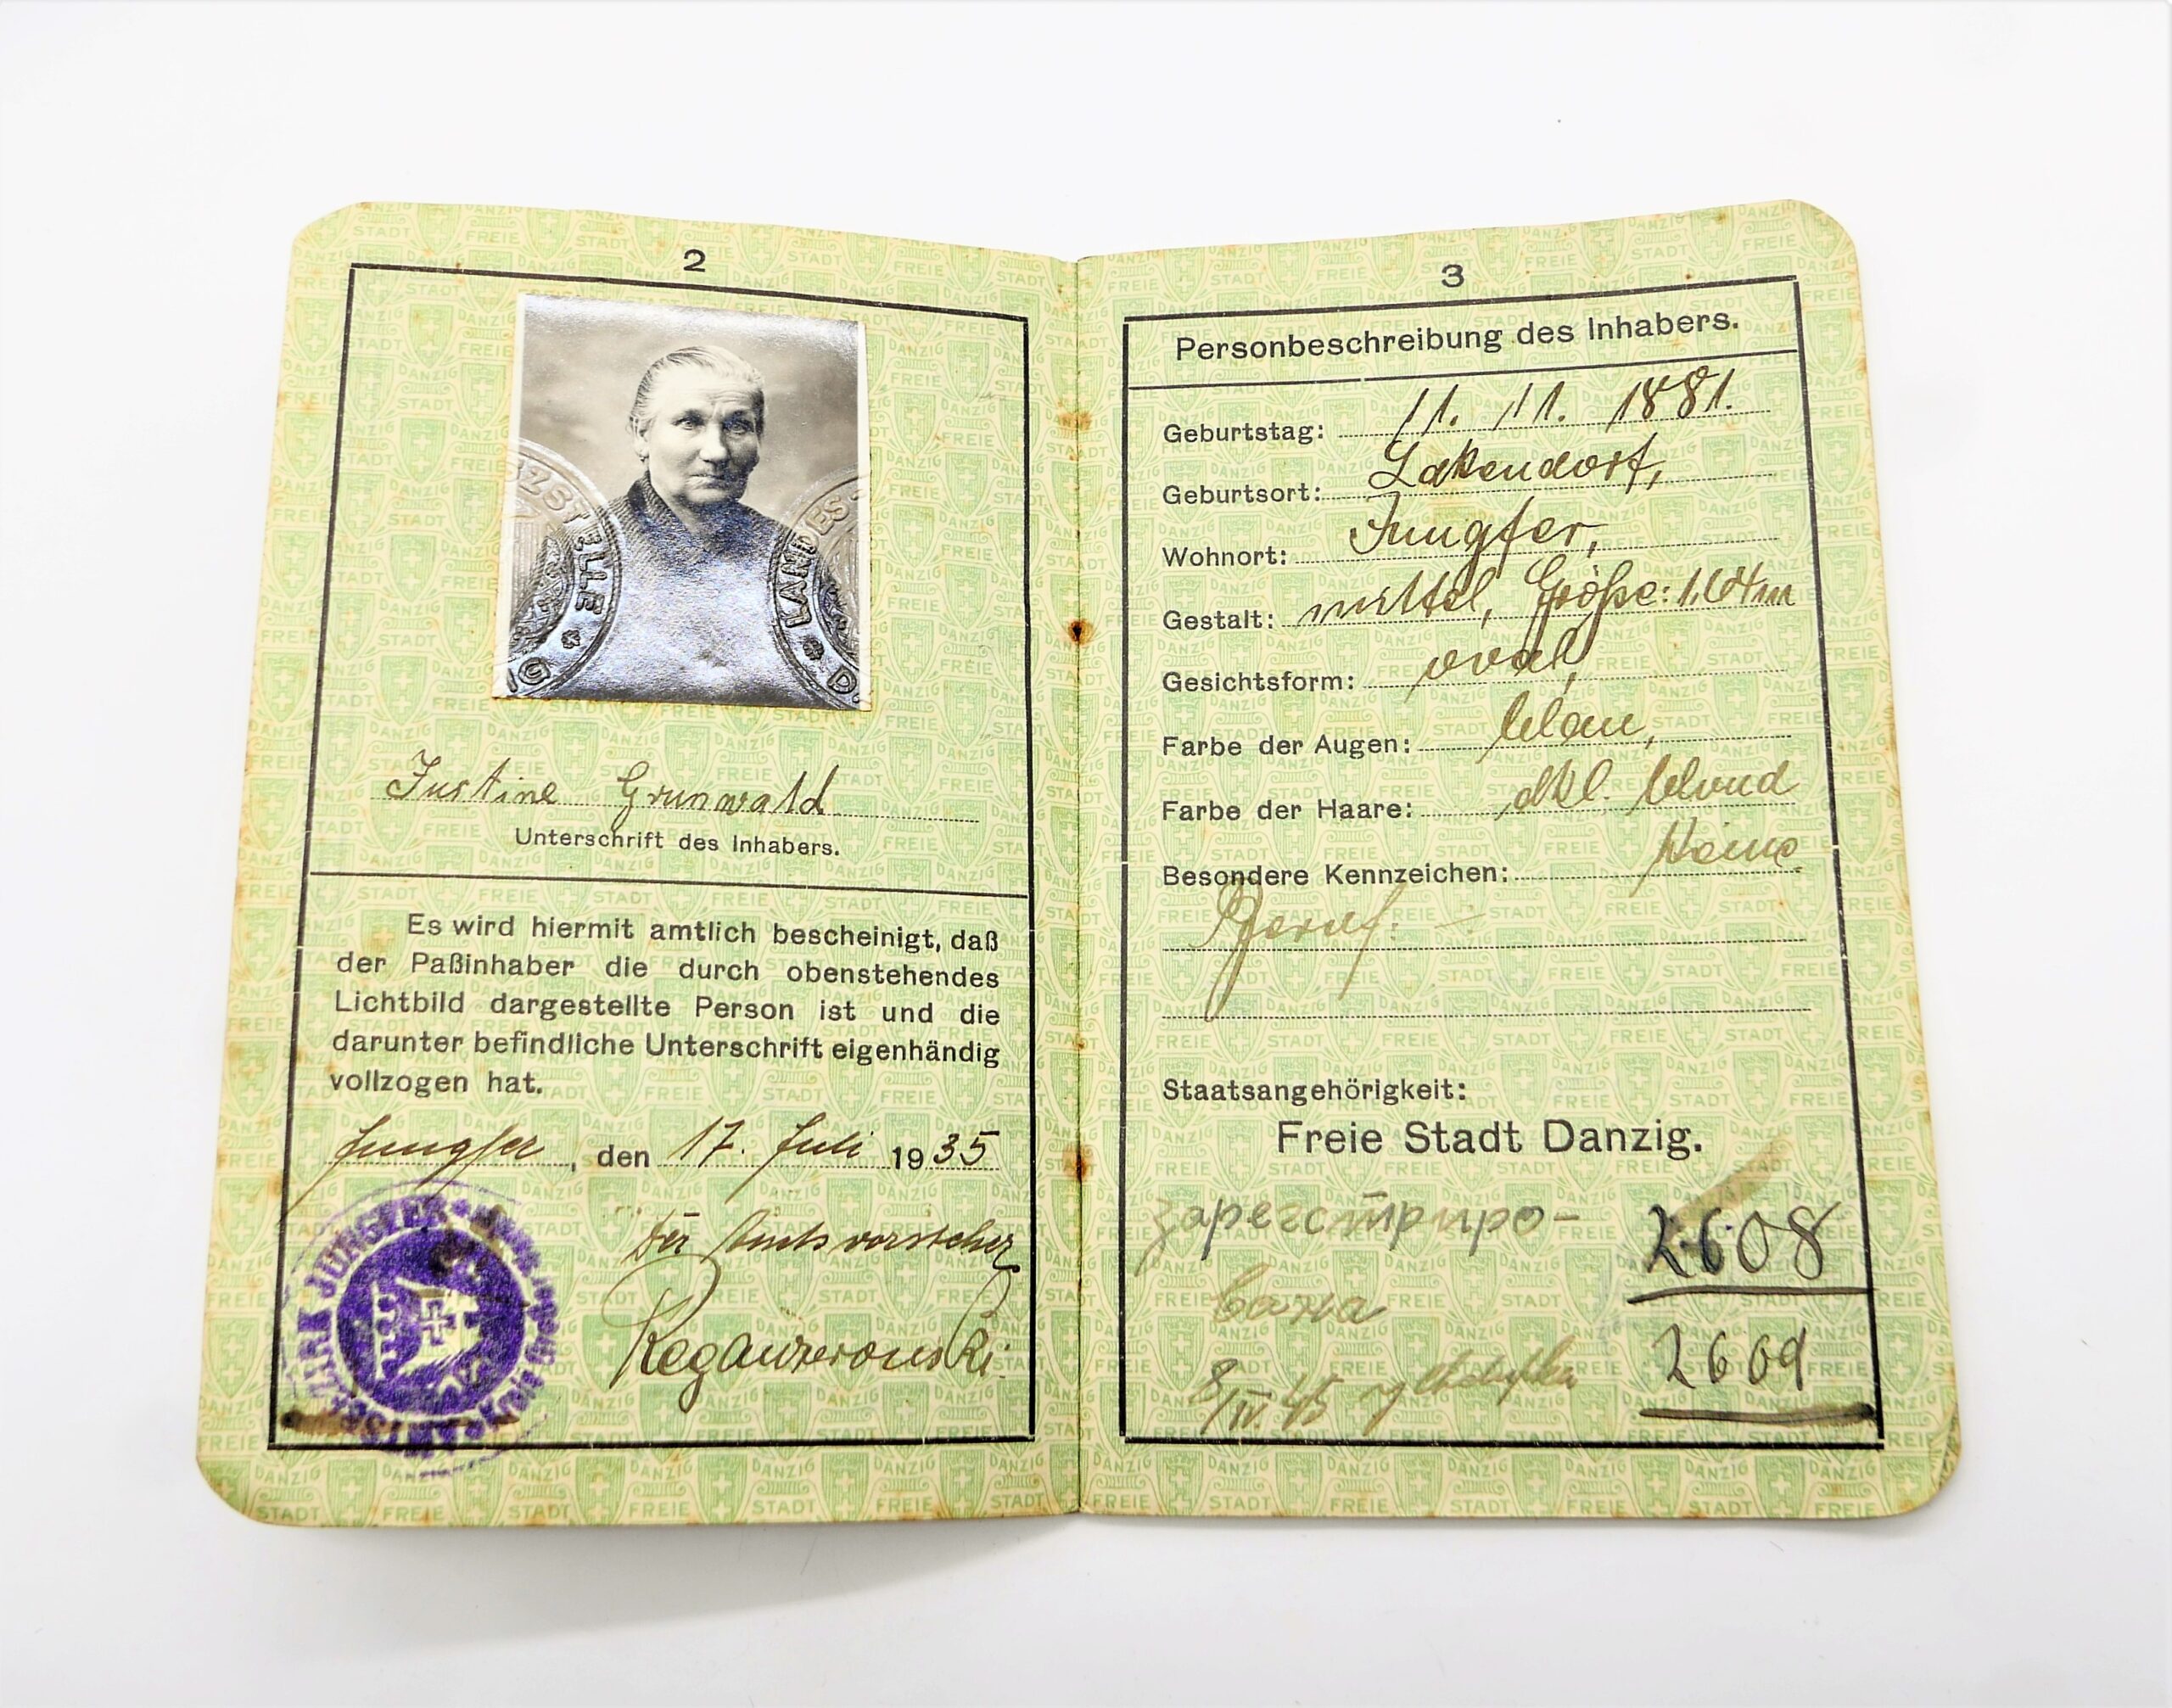 2
ZSTELLE * IG
LANDES * D
Justine Grunwald
Unterschrift des Inhabers.
Es wird hiermit amtlich bescheinigt, daß
der Paßinhaber die durch obenstehendes
Lichtbild dargestellte Person ist und die
darunter befindliche Unterschrift eigenhändig
vollzogen hat.
Jungfer, den 17. Juli 1935
Der Amtsvorsteher
3
Personbeschreibung des Inhabers.
Geburtstag: 11. 11. 1881.
Geburtsort: Lakendorf,
Wohnort: Jungfer,
Gestalt: mittel, Größe: 1,64m
Gesichtsform: oval,
Farbe der Augen: blau,
Farbe der Haare: dkl. blond
Besondere Kennzeichen: Keine.
Beruf: -
Staatsangehörigkeit:
Freie Stadt Danzig.
зарегстриро- 2608
вана
8/IV 45 2609